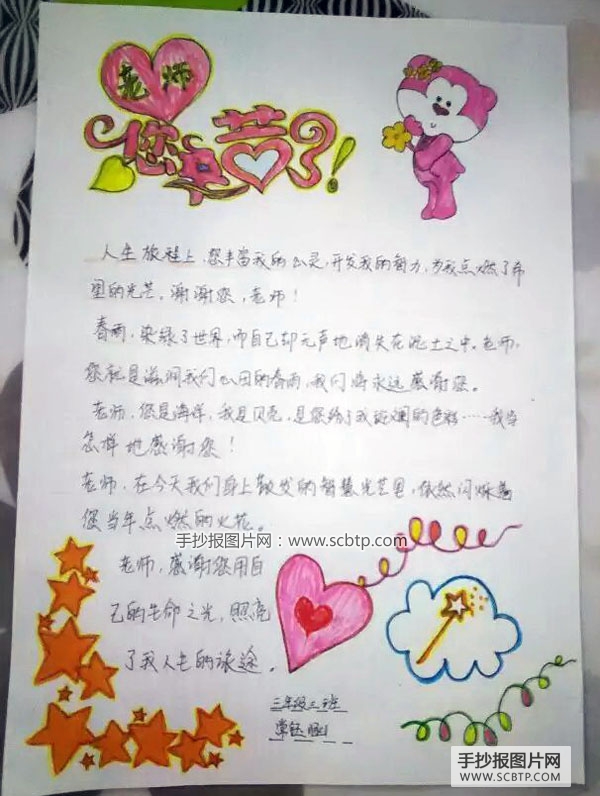 老师
您辛苦了!
人生旅程上,您丰富我的心灵,开发我的智力,为我点燃了希
望的光芒,谢谢您,老师!
春雨,染绿了世界,而自己却无声地消失在泥土之中。老师,
您就是滋润我们心田的春雨,我们将永远感谢您。
老师,您是海洋,我是贝壳,是您给了我斑斓的色彩……我当
怎样地感谢您!
老师,在今天我们身上散发的智慧光芒里,依然闪烁着
您当年点燃的火花。
手抄报图片网:www.scbtp.com
老师,感谢您用自
己的生命之光,照亮
了我人生的旅途。
三年级三班
手抄报图片网
WWW.SCBTP.COM